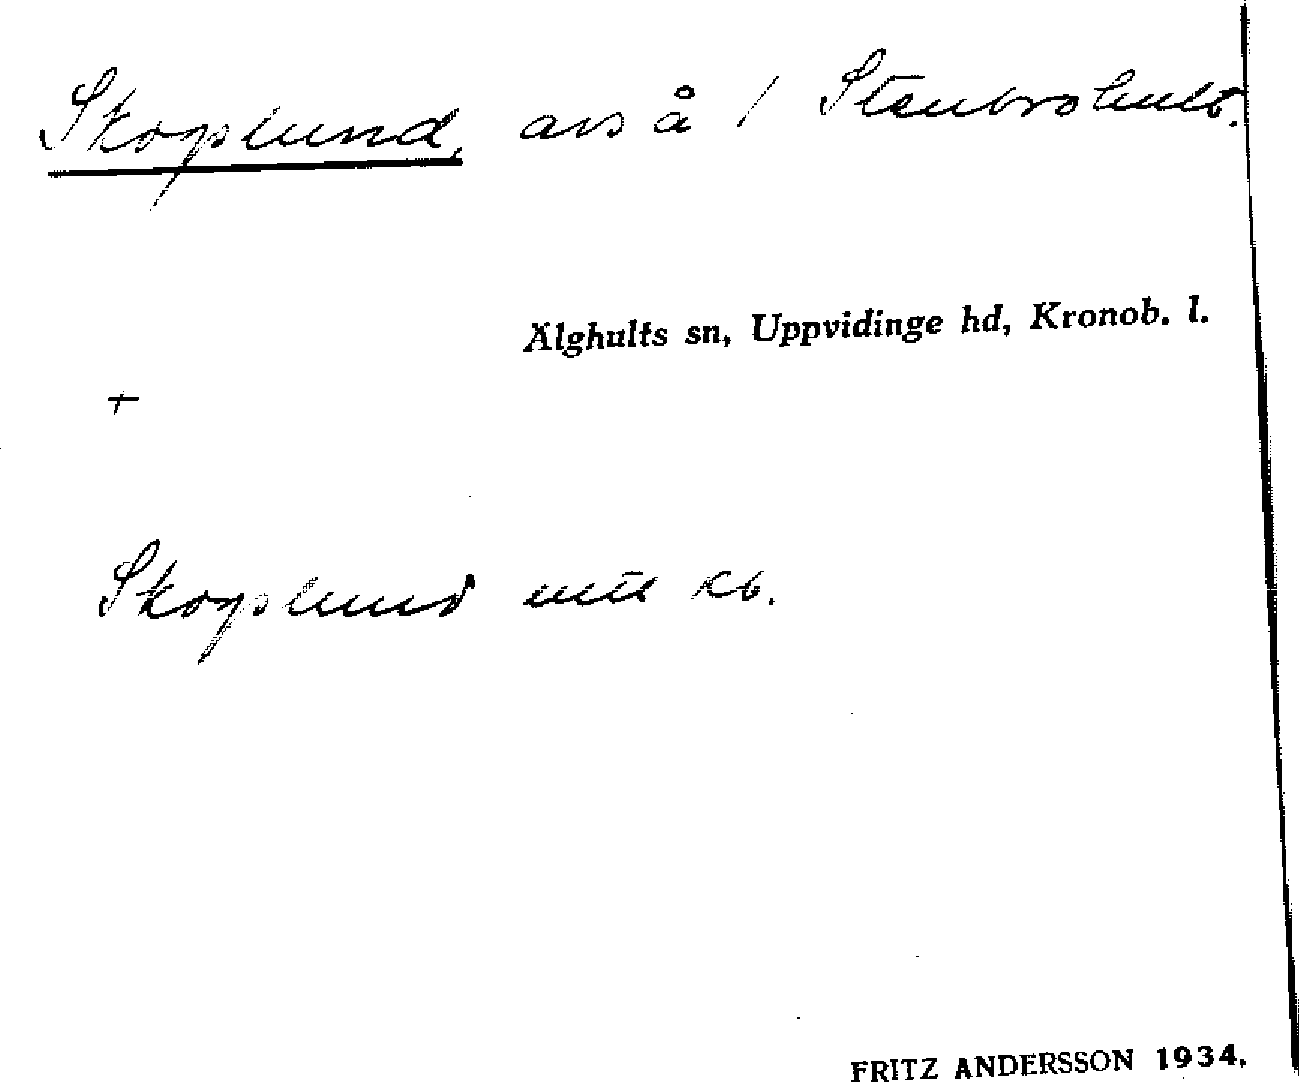 Skogslund, avs å / Stenbrohult.
Älghults sn, Uppvidinge hd, Kronob. l.
+
Skogslund utt kb.
FRITZ ANDERSSON 1934.